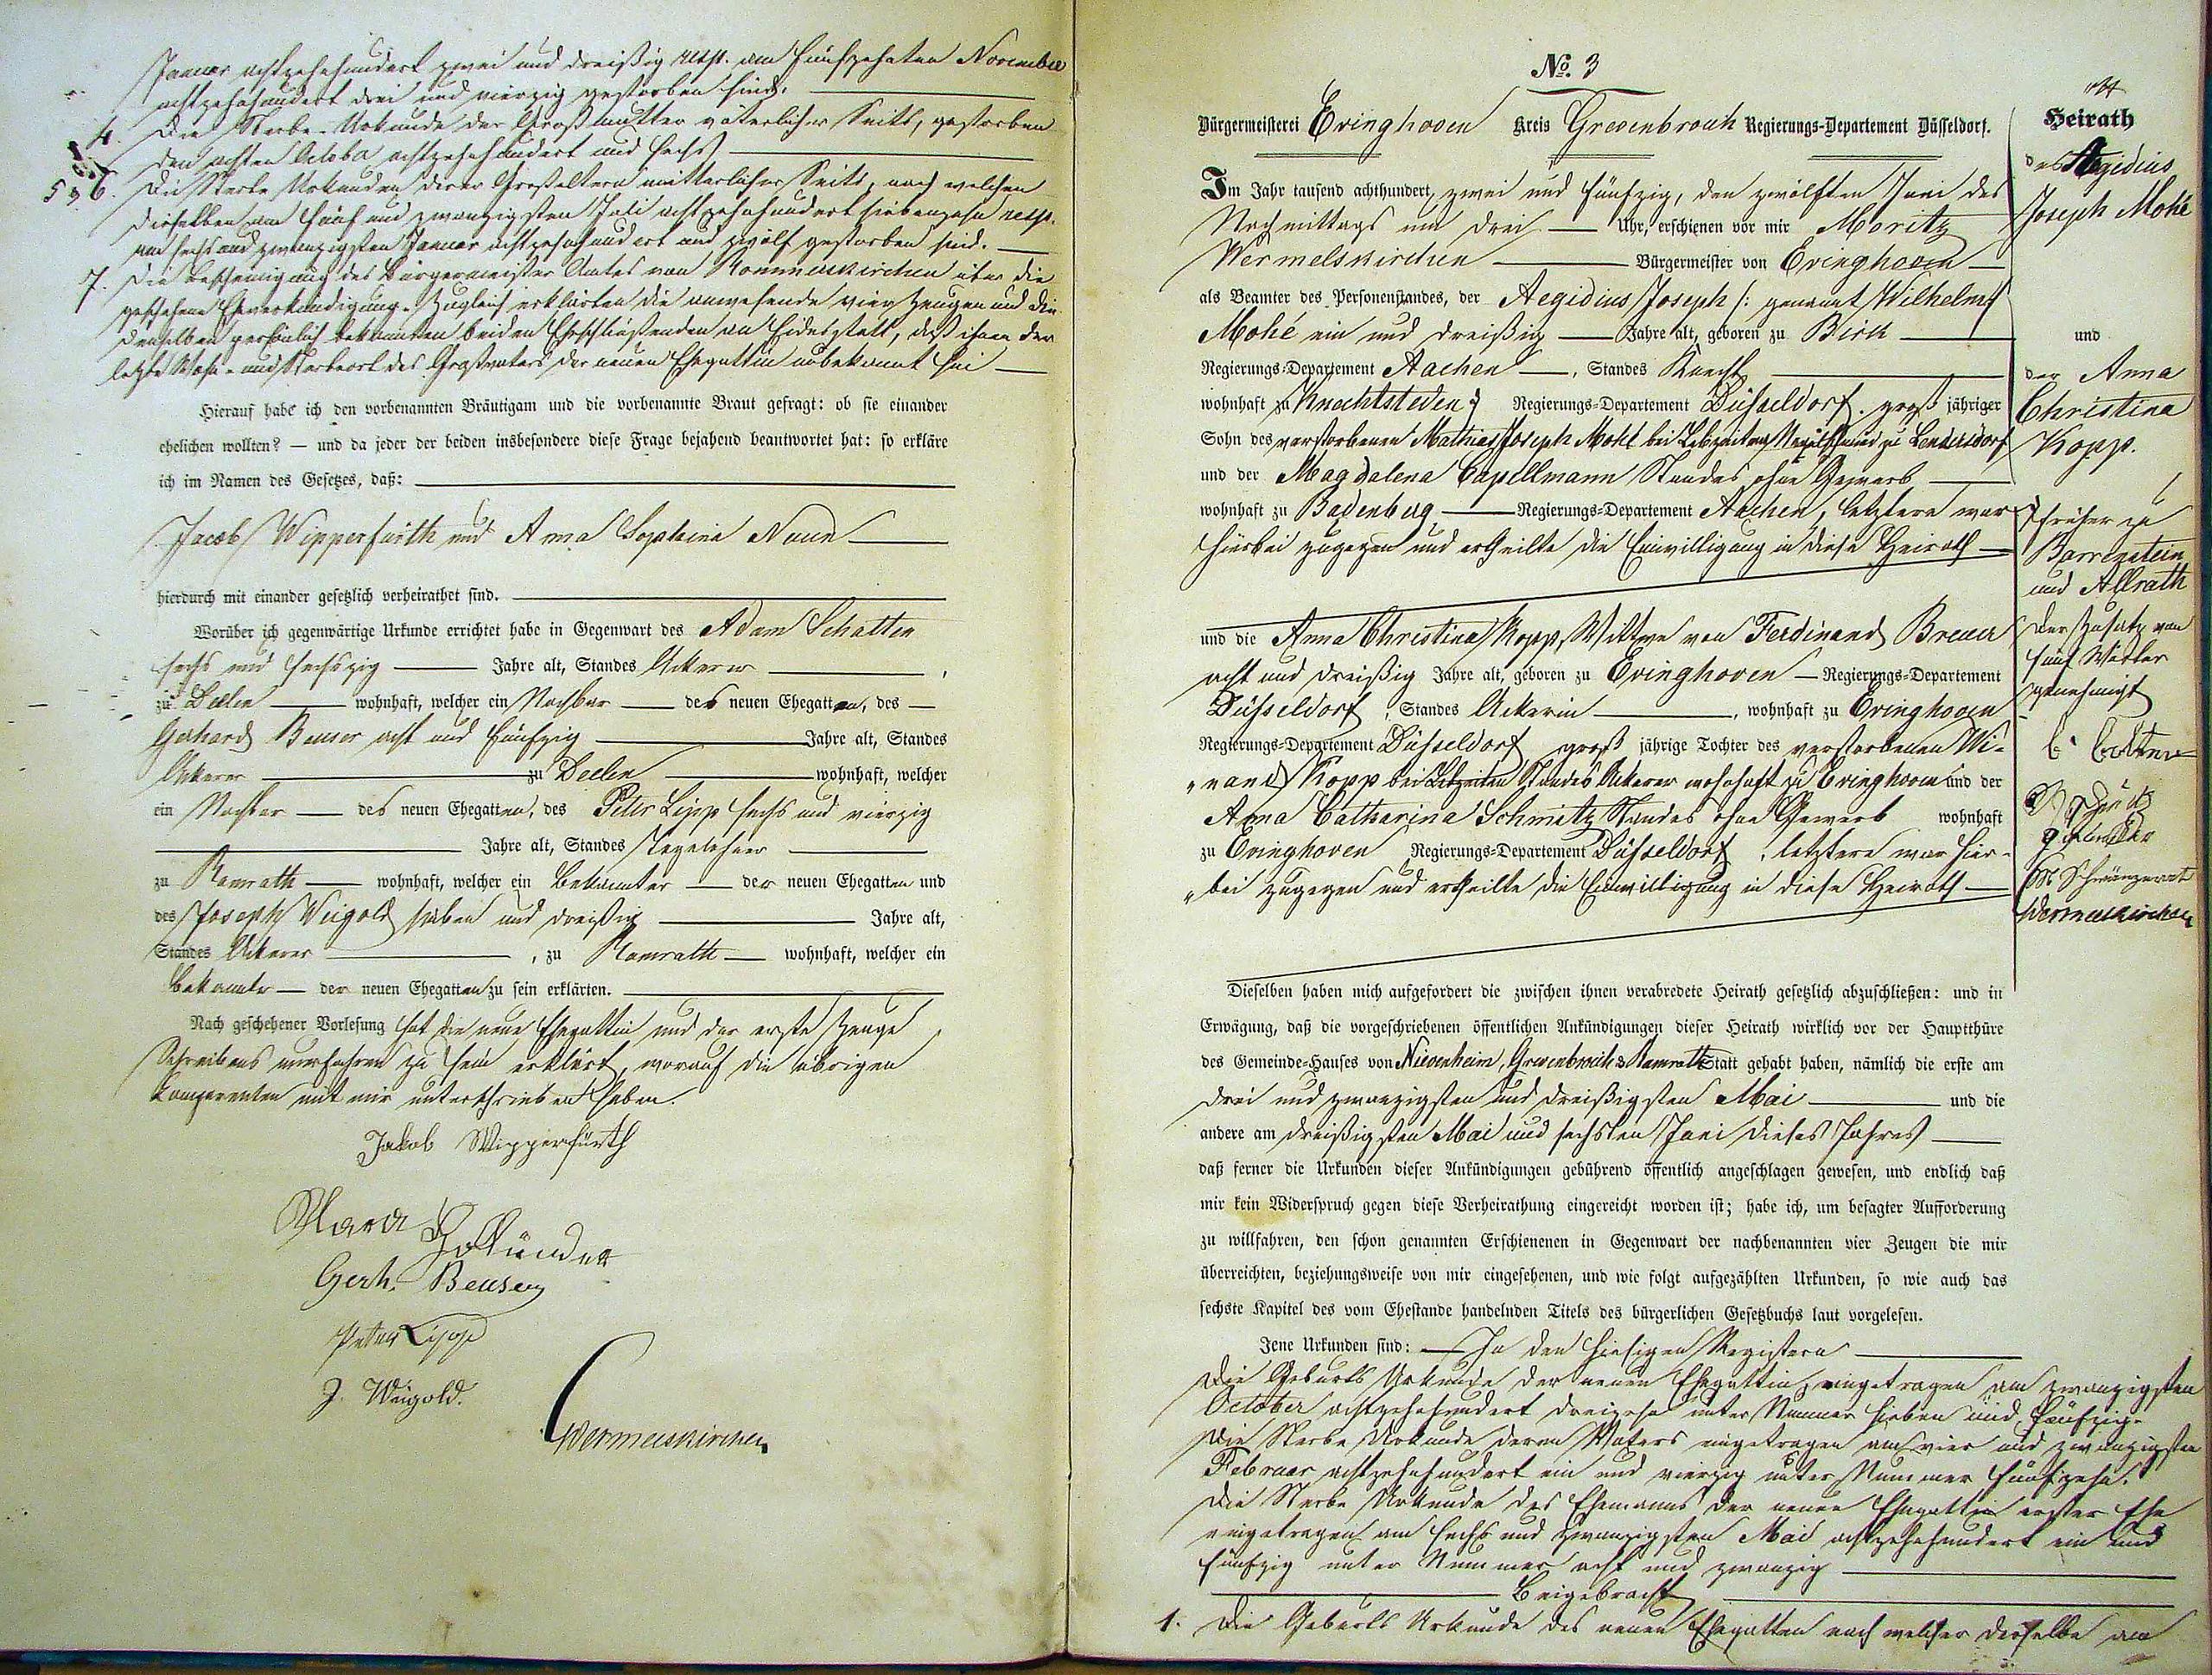 Januar achtzehnhundert zwei und dreißig resp. am fünfzehnten November
achtzehnhundert drei und vierzig gestorben sind.
4. Die Sterbe-Urkunde der Großmutter väterlicher Seits, gestorben
den achten October achtzehnhundert und sechs
5 & 6. Die Sterbe Urkunden deren Großeltern mütterlicher Seits, nach welchen
dieselben am fünf und zwanzigsten Juli achtzehnhundert siebenzehn resp.
am sechs und zwanzigsten Januar achtzehnhundert und zwölf gestorben sind.
7. Die Bescheinigung des Bürgermeister Amtes von Rommerskirchen über die
geschehene Eheverkündigung. Zugleich erklärten die anwesende vier Zeugen und die
denselben persönlich bekannten beiden Eheschließenden an Eidesstatt, daß ihnen der
letzte Wohn- und Sterbeort des Großvaters der neuen Ehegattin unbekannt sei
Hierauf habe ich den vorbenannten Bräutigam und die vorbenannte Braut gefragt: ob sie einander
ehelichen wollten? — und da jeder der beiden insbesondere diese Frage bejahend beantwortet hat: so erkläre
ich im Namen des Gesetzes, daß:
Jacob Wipperfürth und Anna Sophia Naun
hierdurch mit einander gesetzlich verheirathet sind.
Worüber ich gegenwärtige Urkunde errichtet habe in Gegenwart des Adam Schatten
sechs und sechszig Jahre alt, Standes Ackerer,
zu Deelen wohnhaft, welcher ein Nachbar des neuen Ehegatten, des
Gerhard Beuser acht und fünfzig Jahre alt, Standes
Ackerer zu Deelen wohnhaft, welcher
ein Nachbar des neuen Ehegatten, des Peter Lipp sechs und vierzig
Jahre alt, Standes Tagelöhner
zu Ramrath wohnhaft, welcher ein Bekannter der neuen Ehegatten und
des Joseph Weigold sieben und dreißig Jahre alt,
Standes Ackerer, zu Ramrath wohnhaft, welcher ein
Bekannter der neuen Ehegatten zu sein erklärten.
Nach geschehener Vorlesung hat die neue Ehegattin und der erste Zeuge
Schreibens unerfahren zu sein erklärt, worauf die übrigen
Komparenten mit mir unterschrieben haben.
Jakob Wipperfürth
Gerh. Beuser
Peter Lipp
J. Weigold.
Wermelskirchen
No. 3
Bürgermeisterei Evinghoven Kreis Grevenbroich Regierungs-Departement Düsseldorf.
Im Jahr tausend achthundert, zwei und fünfzig, den zwölften Juni des
Nachmittags um drei Uhr, erschienen vor mir Moritz
Wermelskirchen Bürgermeister von Evinghoven
als Beamter des Personenstandes, der Aegidius Joseph /: genannt Wilhelm :/
Mohé ein und dreißig Jahre alt, geboren zu Birk
Regierungs-Departement Aachen, Standes Knecht
wohnhaft zu Knechtsteden Regierungs-Departement Düsseldorf. großjähriger
Sohn des verstorbenen Mathias Joseph Mohé bei Lebzeiten zu Lendersdorf
und der Magdalena Capellmann Standes ohne Gewerb
wohnhaft zu Badenberg Regierungs-Departement Aachen, letztere war
hierbei zugegen und ertheilte die Einwilligung in diese Heirath
und die Anna Christina Kopp, Wittwe von Ferdinand Breuer
acht und dreißig Jahre alt, geboren zu Evinghoven Regierungs-Departement
Düsseldorf, Standes Ackerin, wohnhaft zu Evinghoven
Regierungs-Departement Düsseldorf großjährige Tochter des verstorbenen Wi-
nand Kopp bei Lebzeiten Standes Ackerer wohnhaft zu Evinghoven und der
Anna Catharina Schmitz Standes ohne Gewerb wohnhaft
zu Evinghoven Regierungs-Departement Düsseldorf, letztere war hier-
bei zugegen und ertheilte die Einwilligung in diese Heirath
Dieselben haben mich aufgefordert die zwischen ihnen verabredete Heirath gesetzlich abzuschließen: und in
Erwägung, daß die vorgeschriebenen öffentlichen Ankündigungen dieser Heirath wirklich vor der Hauptthüre
des Gemeinde-Hauses von Nievenheim, Grevenbroich & Ramrath Statt gehabt haben, nämlich die erste am
drei und zwanzigsten und dreißigsten Mai und die
andere am dreißigsten Mai und sechsten Juni dieses Jahres
daß ferner die Urkunden dieser Ankündigungen gebührend öffentlich angeschlagen gewesen, und endlich daß
mir kein Widerspruch gegen diese Verheirathung eingereicht worden ist; habe ich, um besagter Aufforderung
zu willfahren, den schon genannten Erschienenen in Gegenwart der nachbenannten vier Zeugen die mir
überreichten, beziehungsweise von mir eingesehenen, und wie folgt aufgezählten Urkunden, so wie auch das
sechste Kapitel des vom Ehestande handelnden Titels des bürgerlichen Gesetzbuchs laut vorgelesen.
Jene Urkunden sind: In den hiesigen Registern
Die Geburts Urkunde der neuen Ehegattin, eingetragen am zwanzigsten
October achtzehnhundert dreizehn unter Nummer sieben und fünfzig.
Die Sterbe Urkunde deren Vaters eingetragen am vier und zwanzigsten
Februar achtzehnhundert ein und vierzig unter Nummer fünfzehn.
Die Sterbe Urkunde des Ehemanns der neuen Ehegattin erster Ehe
eingetragen am sechs und zwanzigsten Mai achtzehnhundert ein und
fünfzig unter Nummer acht und zwanzig
Beigebracht
1. Die Geburts Urkunde des neuen Ehegatten nach welcher derselbe am
Heirath
des Aegidius
Joseph Mohé
und
der Anna
Christina
Kopp.
früher zu
Barrenstein
und Allrath
Der Zusatz von
fünf Wörter
genehmigt
Wermelskirchen